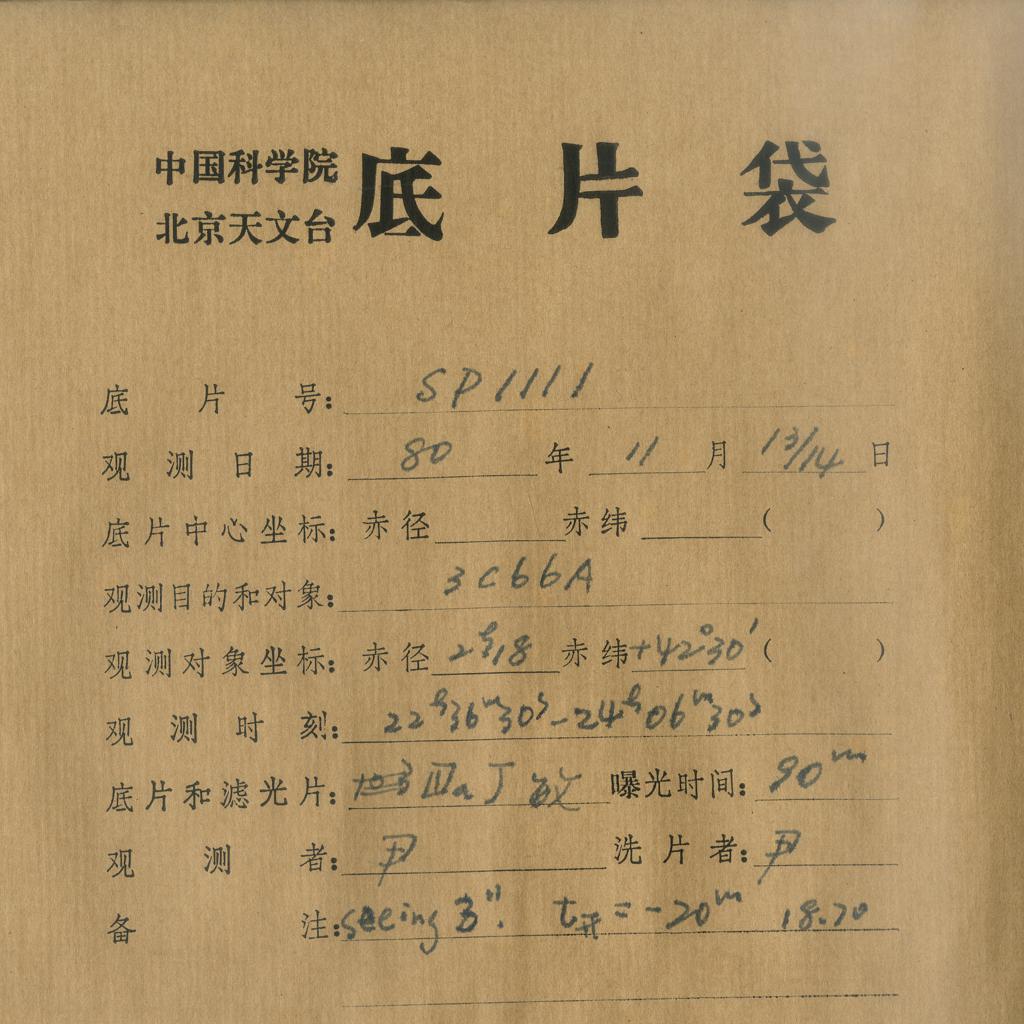 中国科学院
北京天文台
底片袋
底片号：SP1111
观测日期：80年11月13/14日
底片中心坐标：赤径 赤纬 （ ）
观测目的和对象：3C66A
观测对象坐标：赤径2ʰ18 赤纬+42°30′（ ）
观测时刻：22ʰ36ᵐ30ˢ-24ʰ06ᵐ30ˢ
底片和滤光片：Ⅲa J 敏 曝光时间：90ᵐ
观测者：尹 洗片者：尹
备注：seeing 3″. t开=-20ᵐ 18.70